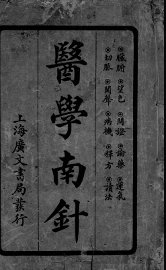 ◎臟腑◎望色◎問證◎論藥◎運氣
◎切脈◎聞聲◎病機◎釋方◎讀法
醫學南針
上海廣文書局發行